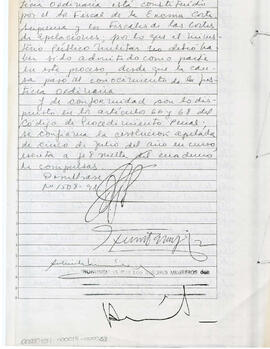 ticia Ordinaria está constituido
por el de Fiscal de la Excma Corte
Suprema y los Fiscales de las Cortes
de Apelaciones, por lo que el minis-
terio Público militar no debió ha-
ber sido admitido como parte
en este proceso, desde que la cau-
sa pasó al conocimiento de la jus-
ticia Ordinaria
y de conformidad con lo dis-
puesto en los artículos 66 y 68 del
Código de Procedimiento Penal,
se confirma la resolución apelada
de cinco de julio del año en curso,
escrita a 18 vuelta del cuaderno
de compulsas.
Devuélvase
Nº 1508-91